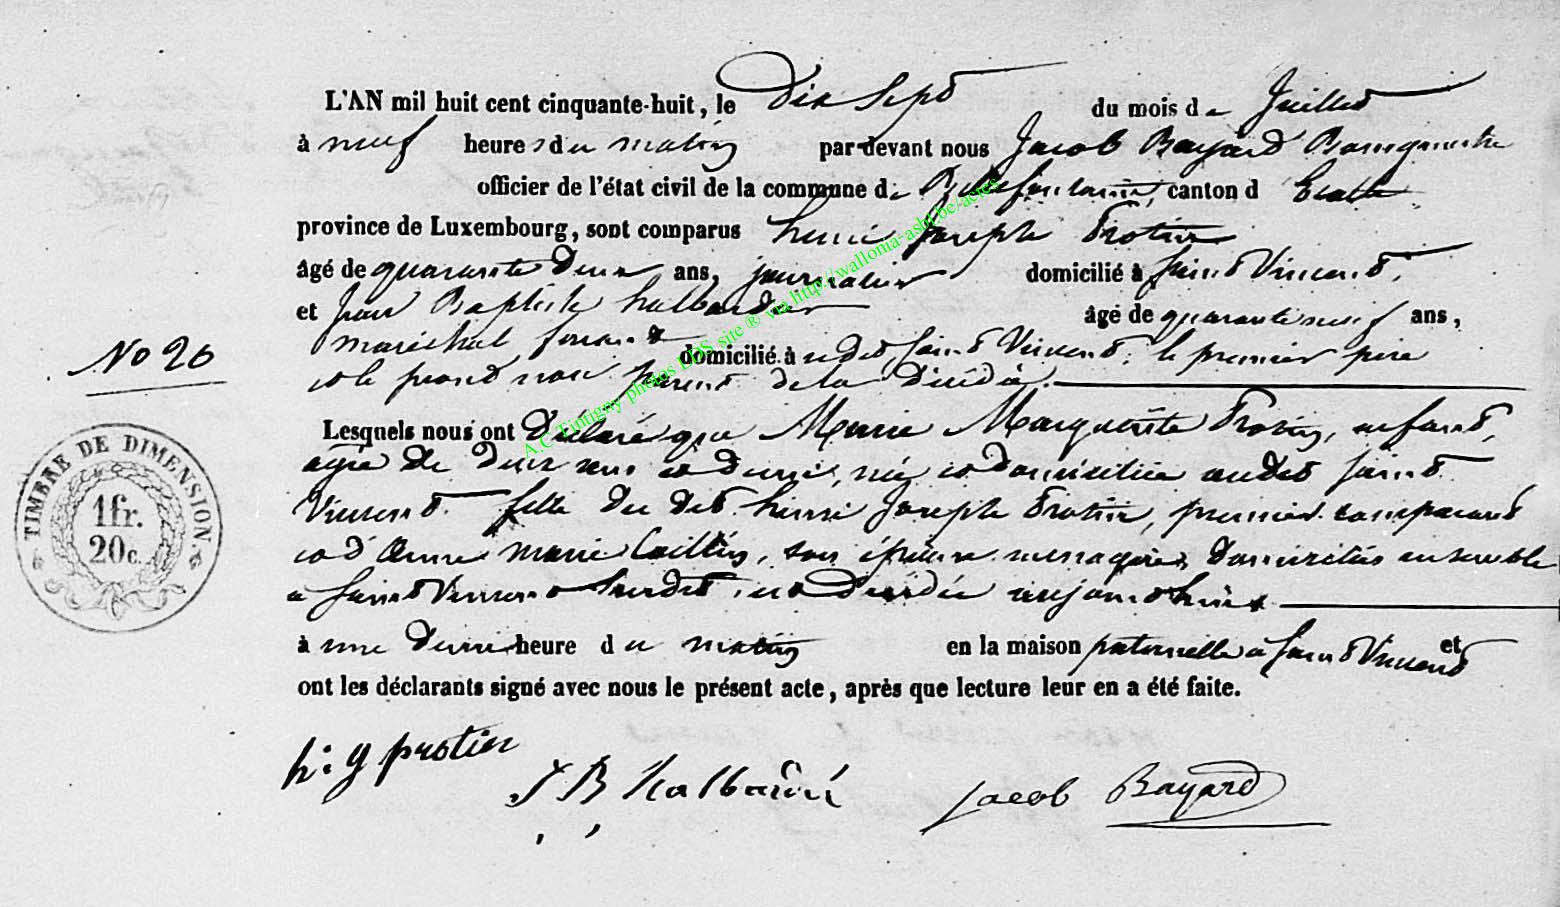 L'AN mil huit cent cinquante-huit, le dix sept du mois de Juillet
à neuf heures du matin par-devant nous Jacob Bayard Bourgmestre
officier de l'état civil de la commune de Bellefontaine, canton d' Etalle
province de Luxembourg, sont comparus henri Joseph Protin
âgé de quarante deux ans, journalier domicilié à Saint Vincent,
et Jean Baptiste halbardier âgé de quarante neuf ans,
maréchal ferrant domicilié à udit Saint Vincent, le premier père
No 26
et le second non parent de la décédée.
Lesquels nous ont déclaré que Marie Marguerite Protin, enfant,
agée de deux ans et demi, née et domiciliée audit Saint
Vincent fille du dit henri Joseph Protin, premier comparant
et d'Anne marie , son épouse menagère, domiciliés ensemble
a Saint Vincent susdit, est décédée aujourd'hui
à une demie heure du matin en la maison paternelle a Saint Vincent et
ont les déclarants signé avec nous le présent acte, après que lecture leur en a été faite.
h: j protin
J B Jacob Bayard
TIMBRE DE DIMENSION.
1fr.
20c.
A.C. Tintigny photos LDS site ® via http://wallonia-asbl.be/actes